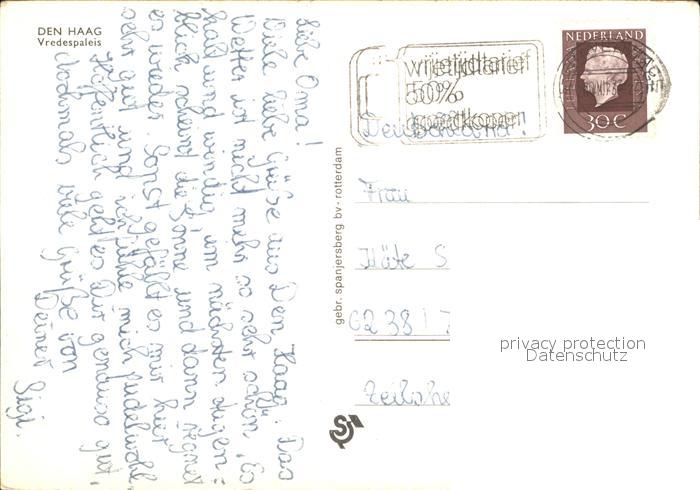 DEN HAAG
Vredespaleis
Liebe Oma!
Viele liebe Grüße aus Den Haag. Das
Wetter ist nicht mehr so sehr schön. Es
kalt und windig, im nächsten Augen=
blick scheint die Sonne und dann regnet
es wieder. Sonst gefällt es mir hier
sehr gut und ich fühle mich pudelwohl.
Hoffentlich geht es Dir genauso gut.
Nochmals viele Grüße von
Deiner Sigi.
gebr. spanjersberg bv - rotterdam
vrijetijdtarief
50%
goedkoper
NEDERLAND
30 C
Deutschland!
Frau
Käte S
6238 / 7
Zeilshe
privacy protection
Datenschutz